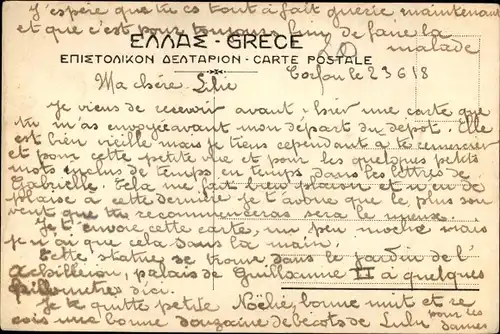 J'espère que tu es tout à fait guerie maintenant
et que c'est pour toujours fini de faire la
malade
ΕΛΛΑΣ - GRECE
ΕΠΙΣΤΟΛΙΚΟΝ ΔΕΛΤΑΡΙΟΝ - CARTE POSTALE
Corfou le 23 6 18
Ma chère Lilie
Je viens de recevoir avant hier une carte que
tu m'as envoyée avant mon départ du dépot. Elle
est bien vieille mais je tiens cependant à te remercier
et pour cette petite vue et pour les quelques petits
mots inclus de temps en temps dans les lettres de
Gabrielle. Cela me fait bien plaisir et n'en de
plaise à cette dernière je t'avoue que le plus sou
vent que tu recommenceras sera le mieux.
Je t'envoie cette carte, un peu moche mais
je n'ai que cela sous la main.
Cette statue se trouve dans le jardin de l'
Achilleion, palais de Guillaume II à quelques
kilomètres d'ici.
Je te quitte petite Noëlie, bonne nuit et re
çois une bonne douzaine de bécots de Lulu
pour les